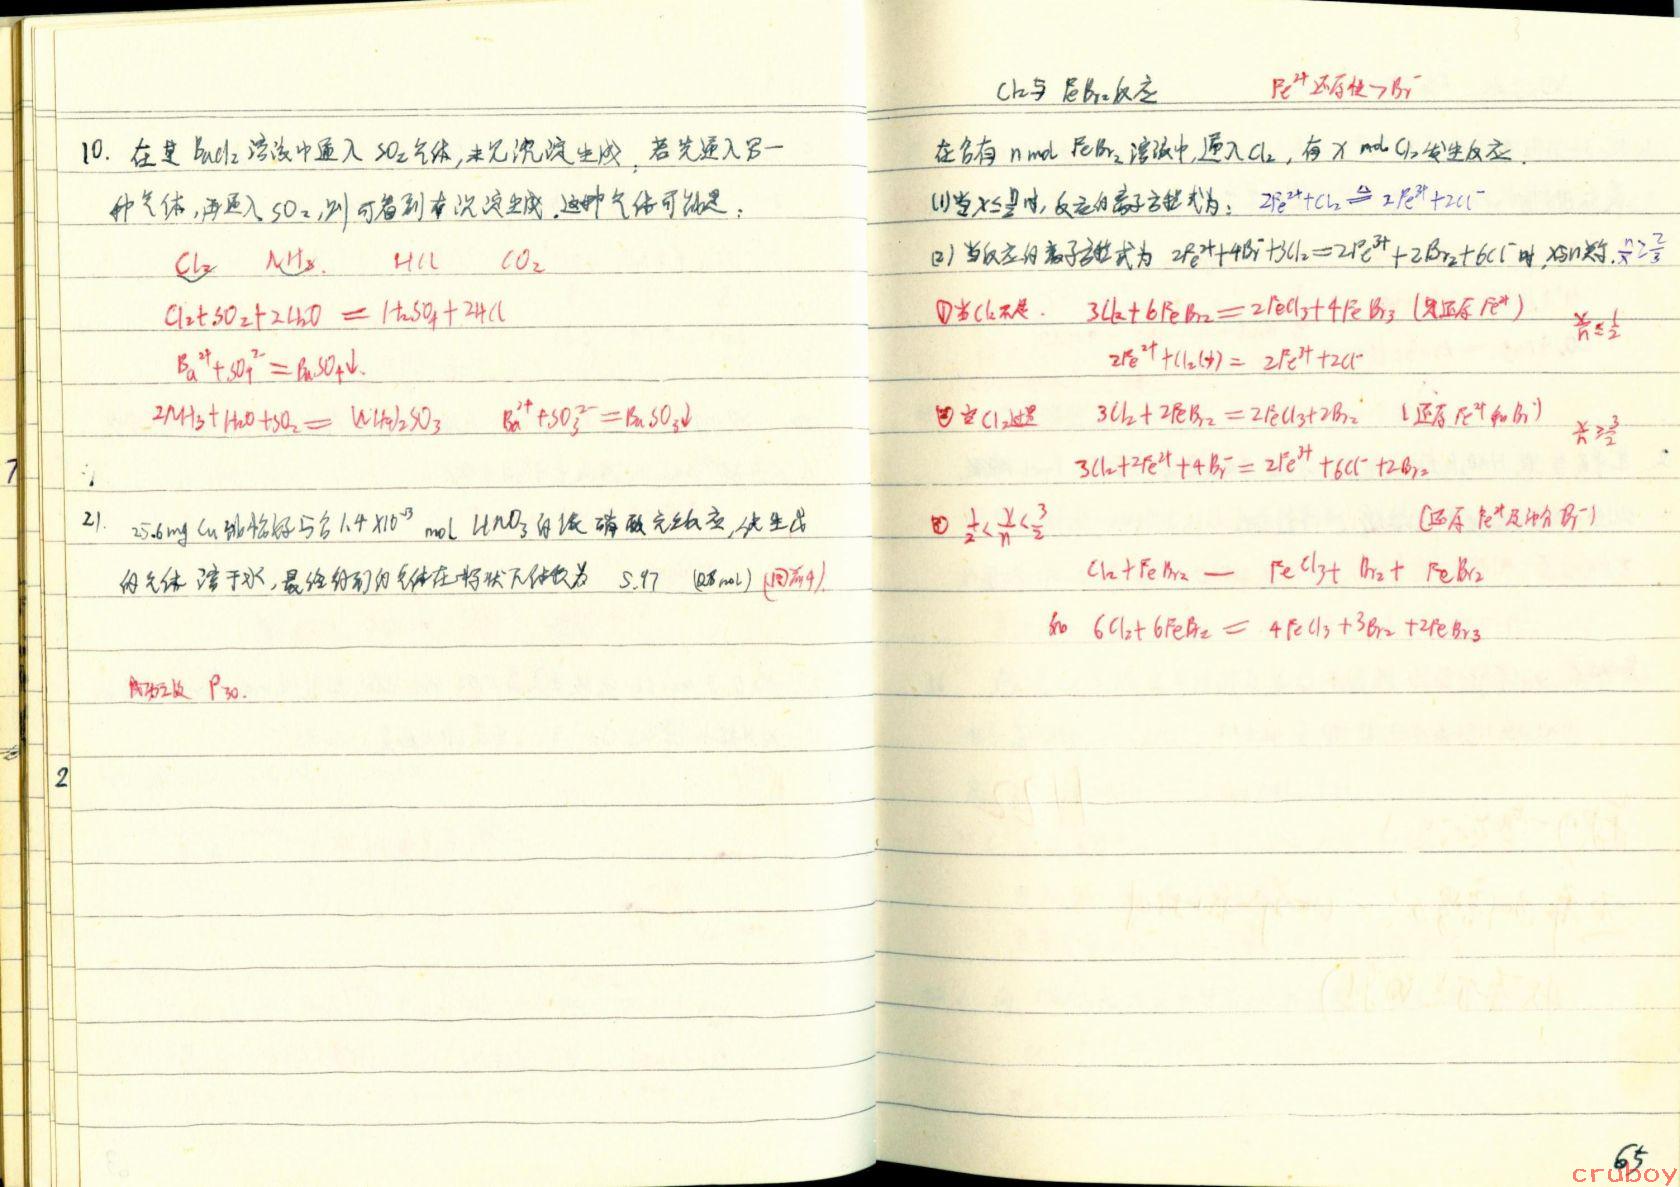 10. 在某 BaCl2 溶液中通入 SO2 气体,未见沉淀生成,若先通入另一
种气体,再通入 SO2,则可看到有沉淀生成.这种气体可能是:
Cl2 NH3. HCl CO2
Cl2+SO2+2H2O = H2SO4+2HCl
Ba2++SO42- = BaSO4↓.
2NH3+H2O+SO2 = (NH4)2SO3 Ba2++SO32- = BaSO3↓
21. 25.6mg Cu 与含1.4×10-3 mol HNO3 的浓硝酸完全反应,
的气体 溶于水,最终得到的气体在标状下体积为 5.97
P30.
7
2
Cl2与 FeBr2反应 Fe2+还原性>Br-
在含有 n mol FeBr2 溶液中,通入Cl2, 有 x mol Cl2发生反应.
(1)当x≤n/2时,反应的离子方程式为: 2Fe2++Cl2 = 2Fe3++2Cl-
(2) 当反应的离子方程式为 2Fe2++4Br-+3Cl2=2Fe3++2Br2+6Cl- 时,
①当Cl2不足. 3Cl2+6FeBr2=2FeCl3+4FeBr3 x/n≤1/2
2Fe2++Cl2(少)= 2Fe3++2Cl-
②当Cl2过量 3Cl2+2FeBr2=2FeCl3+2Br2 (还原 Fe2+和Br-) x/n≥3/2
3Cl2+2Fe2++4Br-=2Fe3++6Cl-+2Br2
③ 1/2<x/n<3/2 (还原 Fe2+及部分Br-)
Cl2+FeBr2 — FeCl3+Br2+FeBr2
如 6Cl2+6FeBr2 = 4FeCl3+3Br2+2FeBr3
65
cruboy